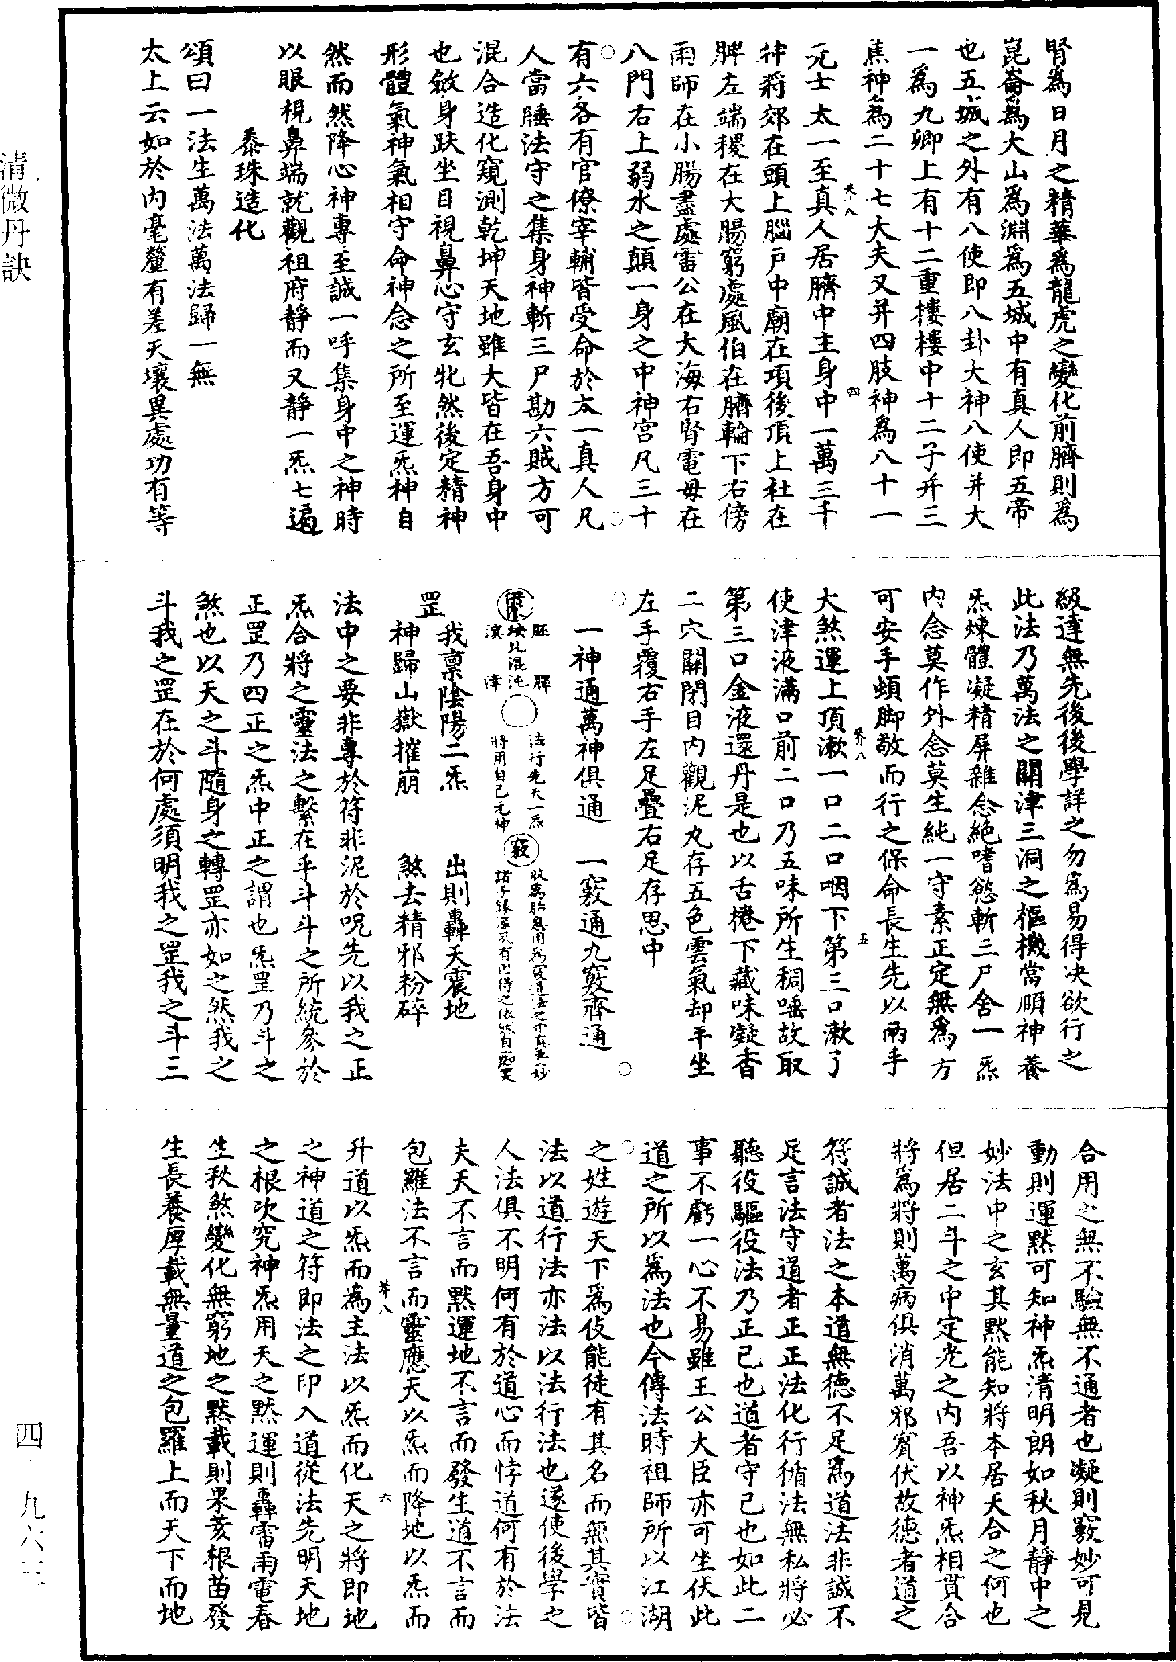 腎為日月之精華為龍虎之變化前臍則為
崑崙為大山為淵為五城中有真人即五帝
也五城之外有八使即八卦大神八使并大
一為九卿上有十二重樓樓中十二子并三
焦神為二十七大夫又并四肢神為八十一
元士太一至真人居臍中主身中一萬三千
神將郊在頭上腦戶中廟在項後頂上社在
脾左端稷在大腸窮處風伯在臍輪下右傍
雨師在小腸盡處雷公在大海右腎電母在
八門右上弱水之顛一身之中神宮凡三十
有六各有官僚宰輔皆受命於太一真人凡
人當睡法守之集身神斬三尸勘六賊方可
混合造化窺測乾坤天地雖大皆在吾身中
也斂身趺坐目視鼻心守玄牝然後定精神
形體氣神氣相守命神念之所至運炁神自
然而然降心神專至誠一呼集身中之神時
以眼視鼻端就觀祖府靜而又靜一炁七遍
黍珠造化
頌曰一法生萬法萬法歸一無
太上云如於內毫釐有差天壤異處功有等
級達無先後後學詳之勿為易得决欲行之
此法乃萬法之關津三洞之樞機當順神養
炁煉體凝精屏雜念絕嗜慾斬三尸舍一炁
內念莫作外念莫生純一守素正定無為方
可安手蝢脚敬而行之保命長生先以兩手
大煞運上頂漱一口二口咽下第三口漱了
使津液滿口前二口乃五味所生稠唾故取
第三口金液還丹是也以舌捲下藏味凝香
二穴關閉目內觀泥丸存五色雲氣却平坐
左手覆右手左足疊右足存思中
一神通萬神俱通　一竅通九竅齊通
胚腪
混沌
溟涬
法行先天一炁
將用自己元神
竅
罡
我稟陰陽二炁　出則轟天震地
神歸山嶽摧崩　煞去精邪粉碎
法中之要非專於符非泥於呪先以我之正
炁合將之靈法之繫在乎斗斗之所統參於
正罡乃四正之炁中正之謂也炁罡乃斗之
煞也以天之斗隨身之轉罡亦如之然我之
斗我之罡在於何處須明我之罡我之斗二
合用之無不驗無不通者也凝則竅妙可見
動則運默可知神炁清明朗如秋月靜中之
妙法中之玄其默能知將本居天合之何也
但居二斗之中定光之內吾以神炁相貫合
將為將則萬病俱消萬邪賓伏故德者道之
符誠者法之本道無德不足為道法非誠不
足言法守道者正正法化行循法無私將必
聽役驅役法乃正已也道者守已也如此二
事不虧一心不易雖王公大臣亦可坐伏此
道之所以為法也今傳法時祖師所以江湖
之姓遊天下為伎能徒有其名而無其實皆
法以道行法亦法以法行法也遂使後學之
人法俱不明何有於道心而悖道何有於法
夫天不言而默運地不言而發生道不言而
包羅法不言而靈應天以炁而降地以炁而
升道以炁而為主法以炁而化天之將即地
之神道之符即法之印入道從法先明天地
之根次究神炁用天之默運則轟雷雨電春
生秋煞變化無窮地之默載則果荄根苗發
生長養厚載無量道之包羅上而天下而地
清微丹訣
四・九六三